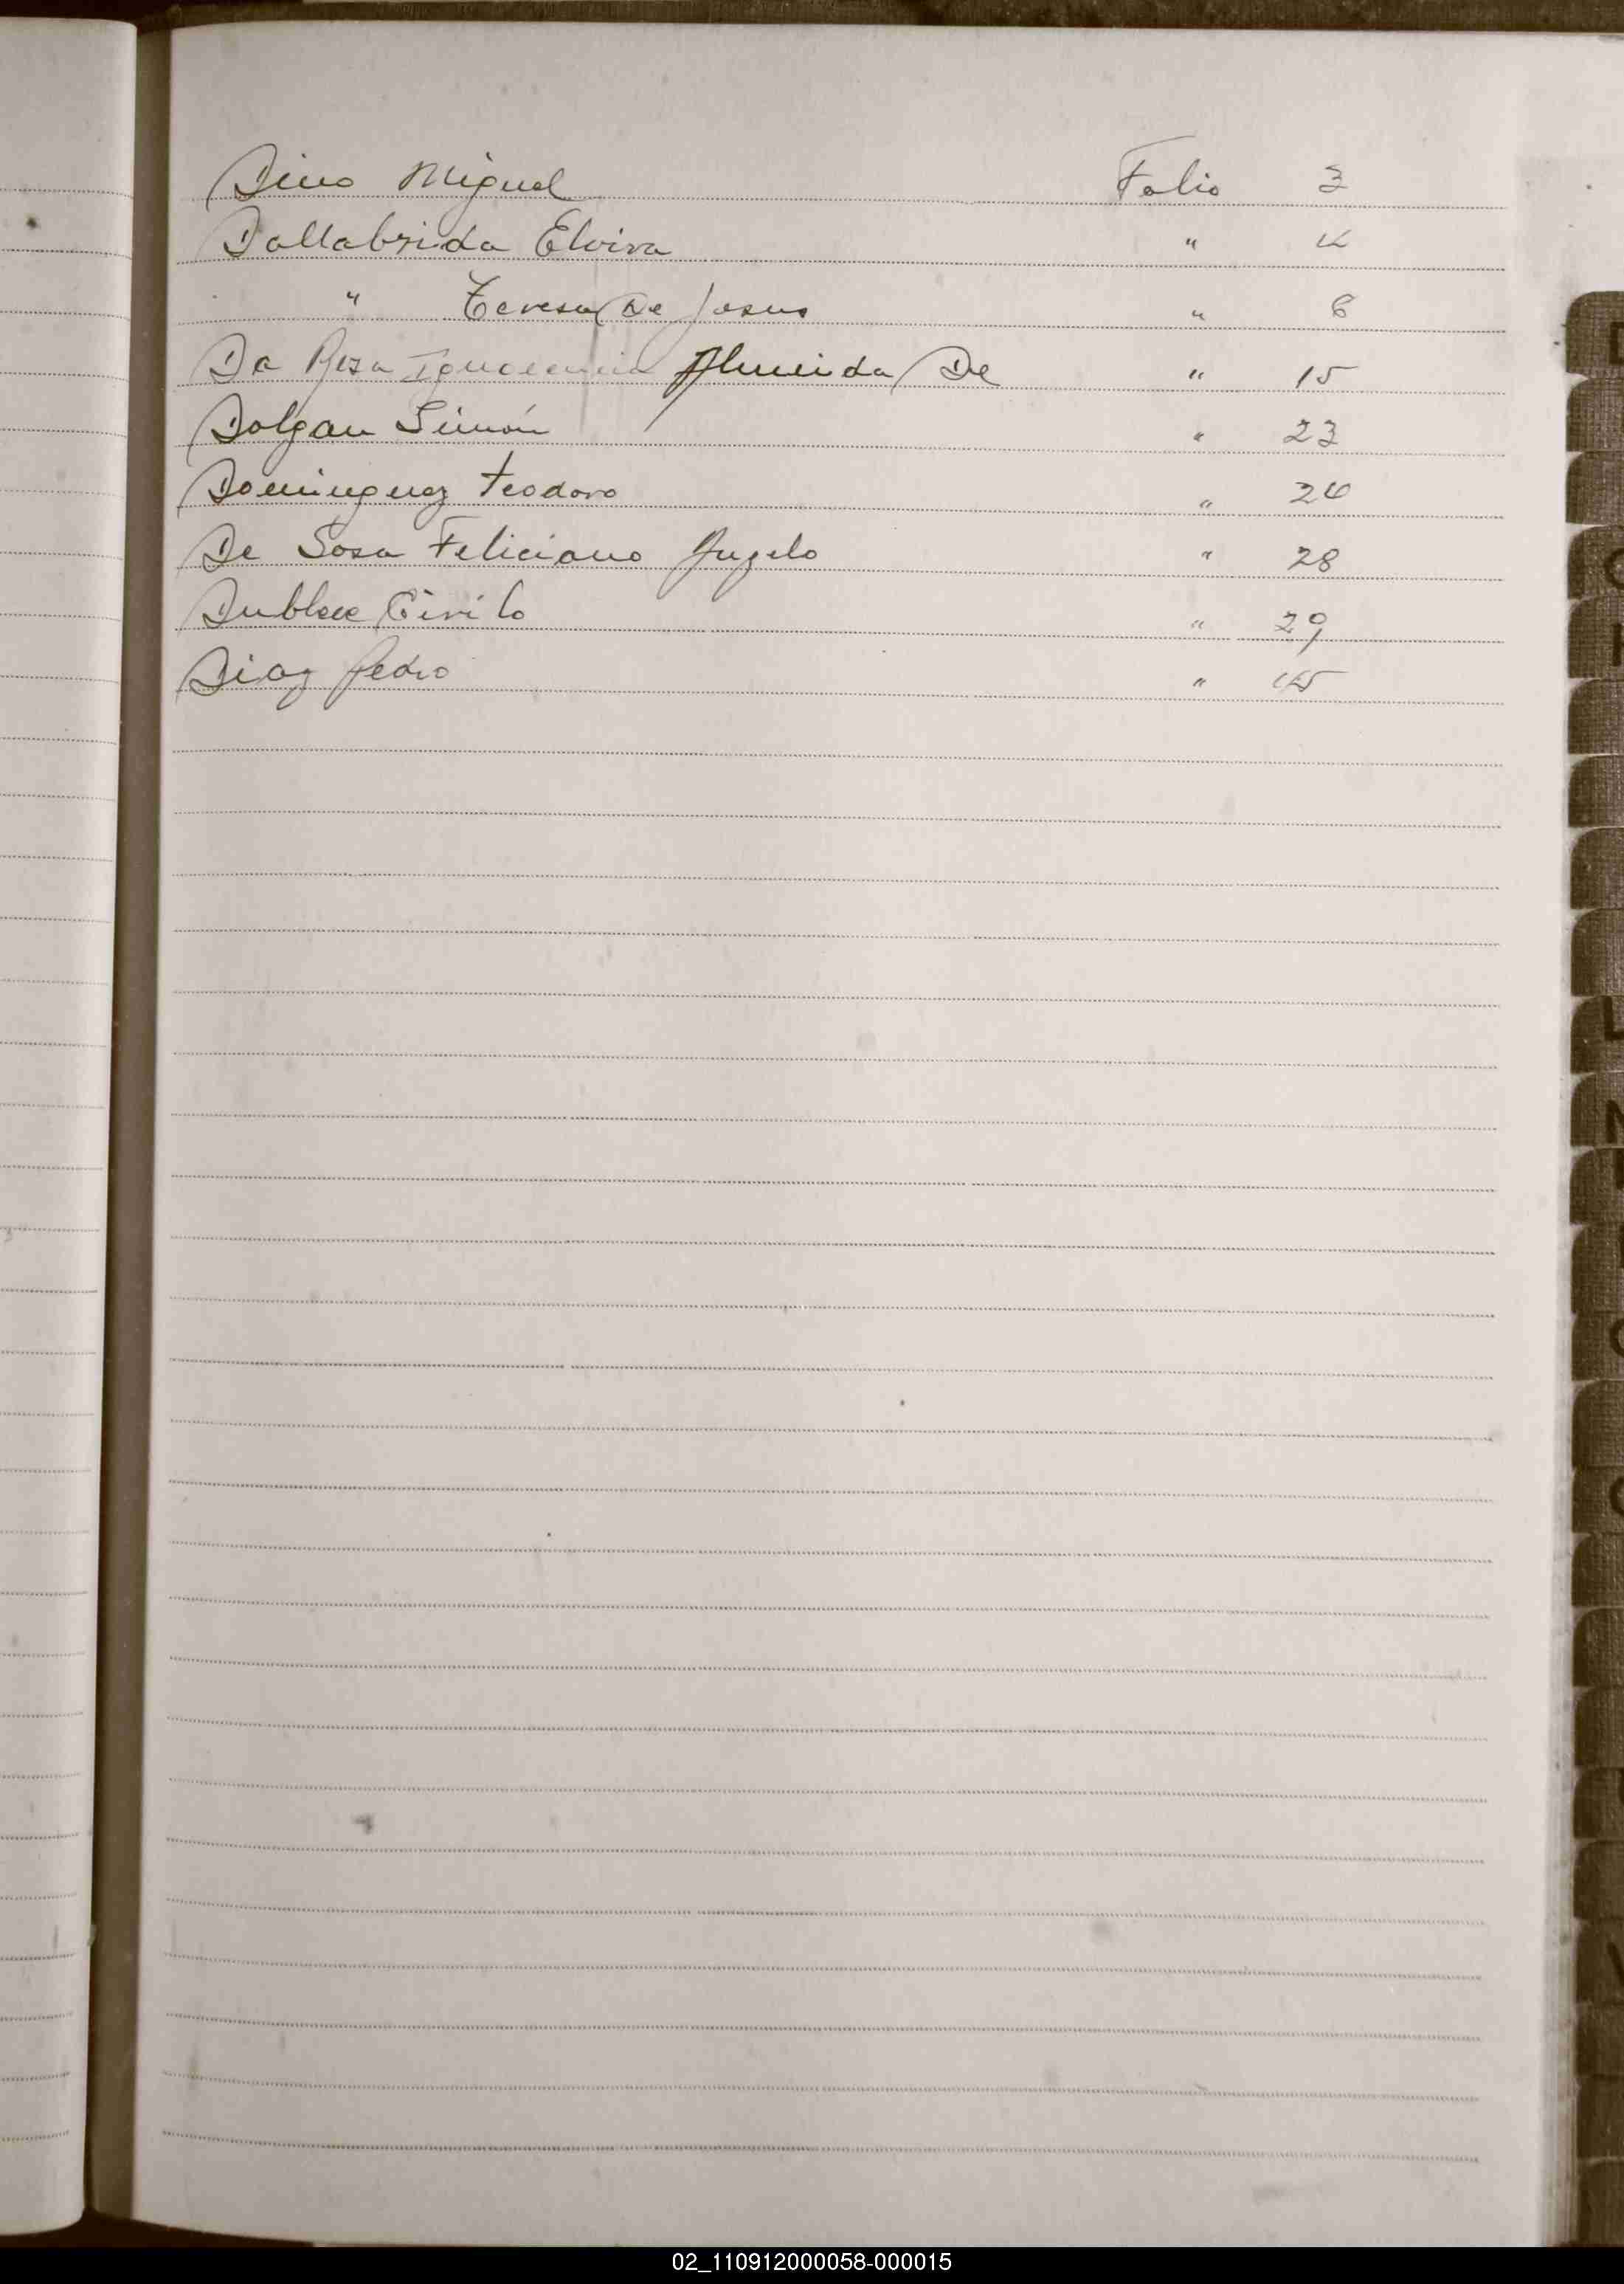 Dino Miguel Folio 3
Dallabrida Elvira " 4
" Teresa De Jesus " 6
Da Rosa Almeida De " 15
Dolgan Simón " 23
Dominguez Teodoro " 24
De Sosa Feliciano Angelo " 28
29
Diaz Pedro " 45
02_110912000058-000015